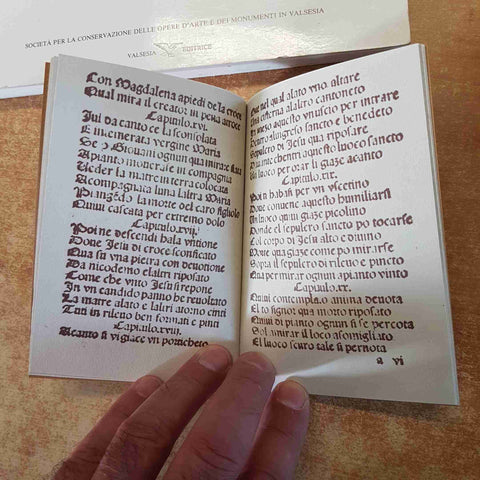 SOCIETÀ PER LA CONSERVAZIONE DELLE OPERE D'ARTE E DEI MONUMENTI IN VALSESIA
VALSESIA EDITRICE
Con Magdalena apiedi de la croce
Qual mira il creator in pena atroce
Capitulo.xvi.
Iui da canto ce la sconsolata
E incinerata vergine Maria
Se o Giouani ognun qua mirare
Apianto mouerale in compagnia
Ueder la matre in terra colocata
Acompagnata luna laltra Maria
Piangēdo la morte del caro figliolo
Quini cascata per extremo dolo
Capitulo.xvii.
Poi ne descendi bala vntione
Doue Jesu di croce sconficato
Qua su vna pietra con deuotione
Da nicodemo elaltri riposato
Come che vnto Jesu si reposne
In vn candido panno he reuoltato
La matre alato e laltri atorno cinti
Tuti in rileuo ben formati e pinti
Capitulo.xviii.
Acanto si vigiace vn poticheto
nel qual alato vno altare
Una cisterna alaltro cantoneto
in meso aquesto vnuscio per intrare
Dentro alingreso sancto e benedeto
Sepulcro di Jesu qua riposare
Dui me chentri aquesto luoco sancto
El luoco per orar li giaze acanto
Capitulo.xix.
Poi n habasi per vn vscetino
Doue conuene aquesto humiliarsi
Un luoco quini giaze picolino
Donde el sepulcro sancto po tocarse
Col corpo di Jesu alto e diuino
Doue qua giaze como po mirarse
Sopra il sepulcro di rileuo e pincto
Qua per mirar ognun apianto vinto
Capitulo.xx.
Quini contemplato anima deuota
El to signor qua morto riposato
Quini di pianto ognun si se percota
Sol amirar il loco asomigliato
El luoco scuro tale si pernota
a vi